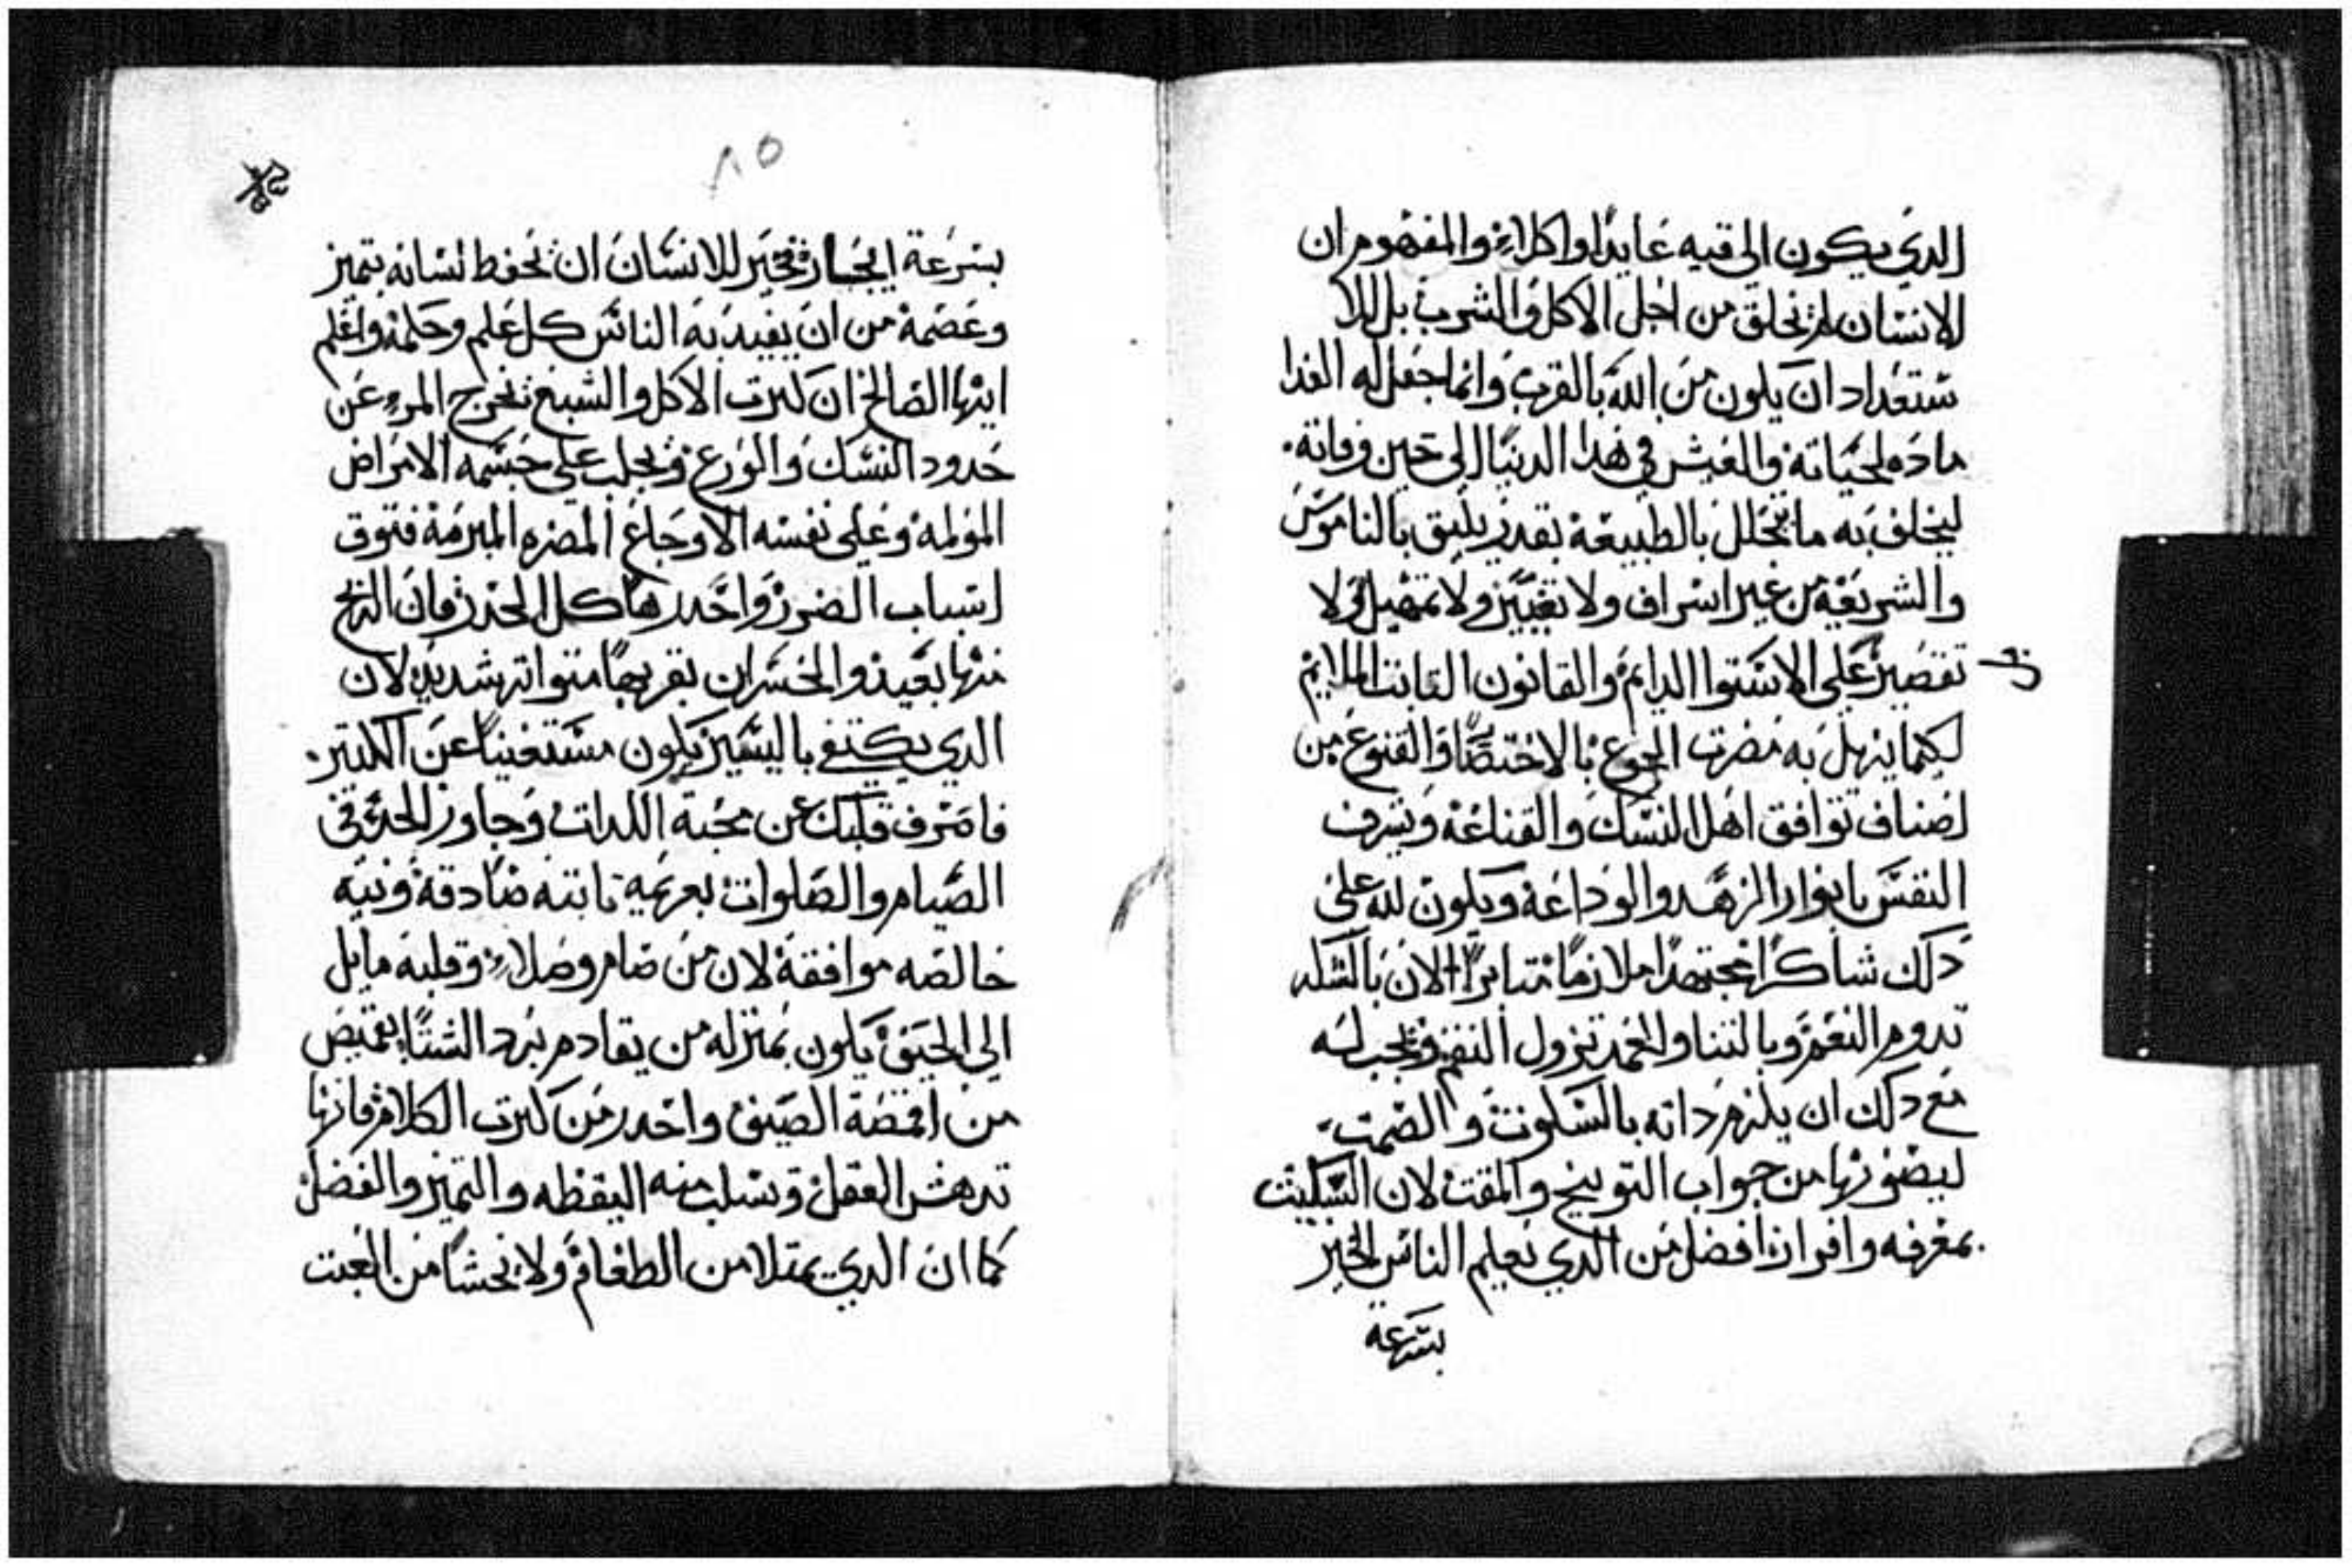 الدي يكون الي قيه عايدا واكلاء والمفهوم ان
الانسان لم يخلق من اجل الاكل والشرب بل للا
ستعداد ان يكون من الله بالقرب وانما جعل له الغدا
ماده لحياته والعيش في هدا الدنيا الي حين وفاته.
ليخلف به ما تحلل بالطبيعة بقدر يليق بالناموس
والشريعه من غير اسراف ولا تغيير ولا تمهيل ولا
تقصير علي الاستوا الدايم والقانون التابت الملايم
لكيما يزيل به مضرت الجوع بالاختصا والقنوع من
اصناف توافق اهل النسك والقناعة وتشرف
النفس بانوار الزهد والوداعة ويكون لله علي
دلك شاكرا مجتهدا ملازما متابرا لان بالشكر
تدوم النعم وبالتناول الحمد تزول النقم ويجب له
مع دلك ان يلزم داته بالسكوت والصمت
ليصونها من جواب التوبيخ والمقت لان السكيت
بمعرفه وافراز افضل من الدي يعلم الناس الخير
بسرعة
٨٥
بسرعة ايجاز وخير للانسان ان يحفط لسانه بتميز
وعصمة من ان يفيد به الناس كل علم وحلمة واعلم
ايها الصالح ان كترت الاكل والشبع تخرج المرء عن
حدود النسك والورع وتجلب علي جسمه الامراض
المولمة وعلي نفسه الاوجاع المضره المبرمة فتوق
اسباب الضرر واحدرها كل الحدر فان الربح
منها بعيد والخسران بقربها متواتر شديد لان
الدي يكتفي باليسير يكون مستغنيا عن الكتير.
فاصرف قلبك عن محبة اللدات وجاوز الحد في
الصيام والصلوات بعزيمه تابته صادقة ونيه
خالصه موافقة لان من صام وصلاء وقلبه مايل
الي الحيق يكون بمنزله من يقادم برد الشتا بقميص
من اقمصة الصيف واحدر من كترت الكلام فانها
تدهش العقل وتسلب منه اليقظه والتميز والفضل
كما ان الدي يمتلا من الطعام ولا يخشا من العبت